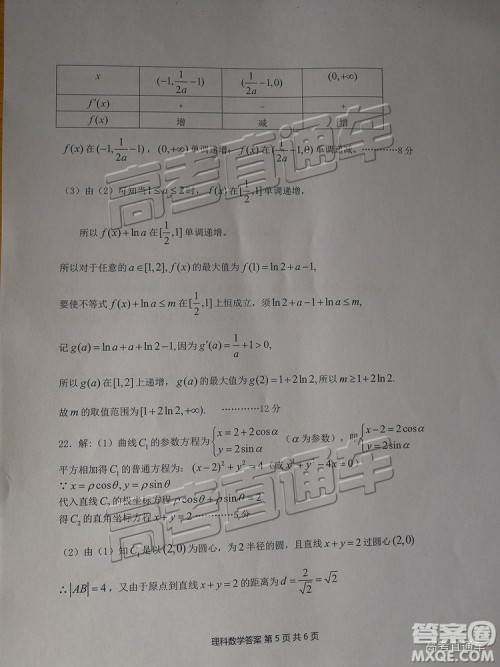 x (-1, 1/2a -1) (1/2a -1,0) (0,+∞)
f'(x) + - +
f(x) 增 减 增
f(x)在(-1, 1/2a -1),(0,+∞)单调递增,f(x)在(1/2a -1,0)单调递减。…………8分
(3)由(2)可知当1≤a≤2时,f(x)在[1/2,1]单调递增,
所以 f(x)+ln a在[1/2,1]单调递增。
所以对于任意的a∈[1,2],f(x)的最大值为f(1)=ln2+a-1,
要使不等式f(x)+ln a≤m在[1/2,1]上恒成立,须ln2+a-1+ln a≤m,
记g(a)=ln a+a+ln2-1,因为g'(a)=1/a+1>0,
所以g(a)在[1,2]上递增,g(a)的最大值为g(2)=1+2ln2,所以m≥1+2ln2.
故m的取值范围为[1+2ln2,+∞). …………12分
22. 解:(1)曲线C₁的参数方程为{x=2+2cosα y=2sinα (α为参数),即{x-2=2cosα y=2sinα
平方相加得C₁的普通方程为:(x-2)²+y²=4(或x²+y²-4x=0)
∵x=ρcosθ,y=ρsinθ
代入直线C₂的极坐标方程ρcosθ+ρsinθ=2
得C₂的直角坐标方程为x+y=2……5分
(2)由(1)知C₁是以(2,0)为圆心,为2半径的圆,且直线x+y=2过圆心(2,0)
∴|AB|=4,又由于原点到直线x+y=2的距离为d=2/√2=√2
理科数学答案 第5页共6页
高考直通车
高考直通车
高考直通车
答案圈
MXQE.COM
高考直通车